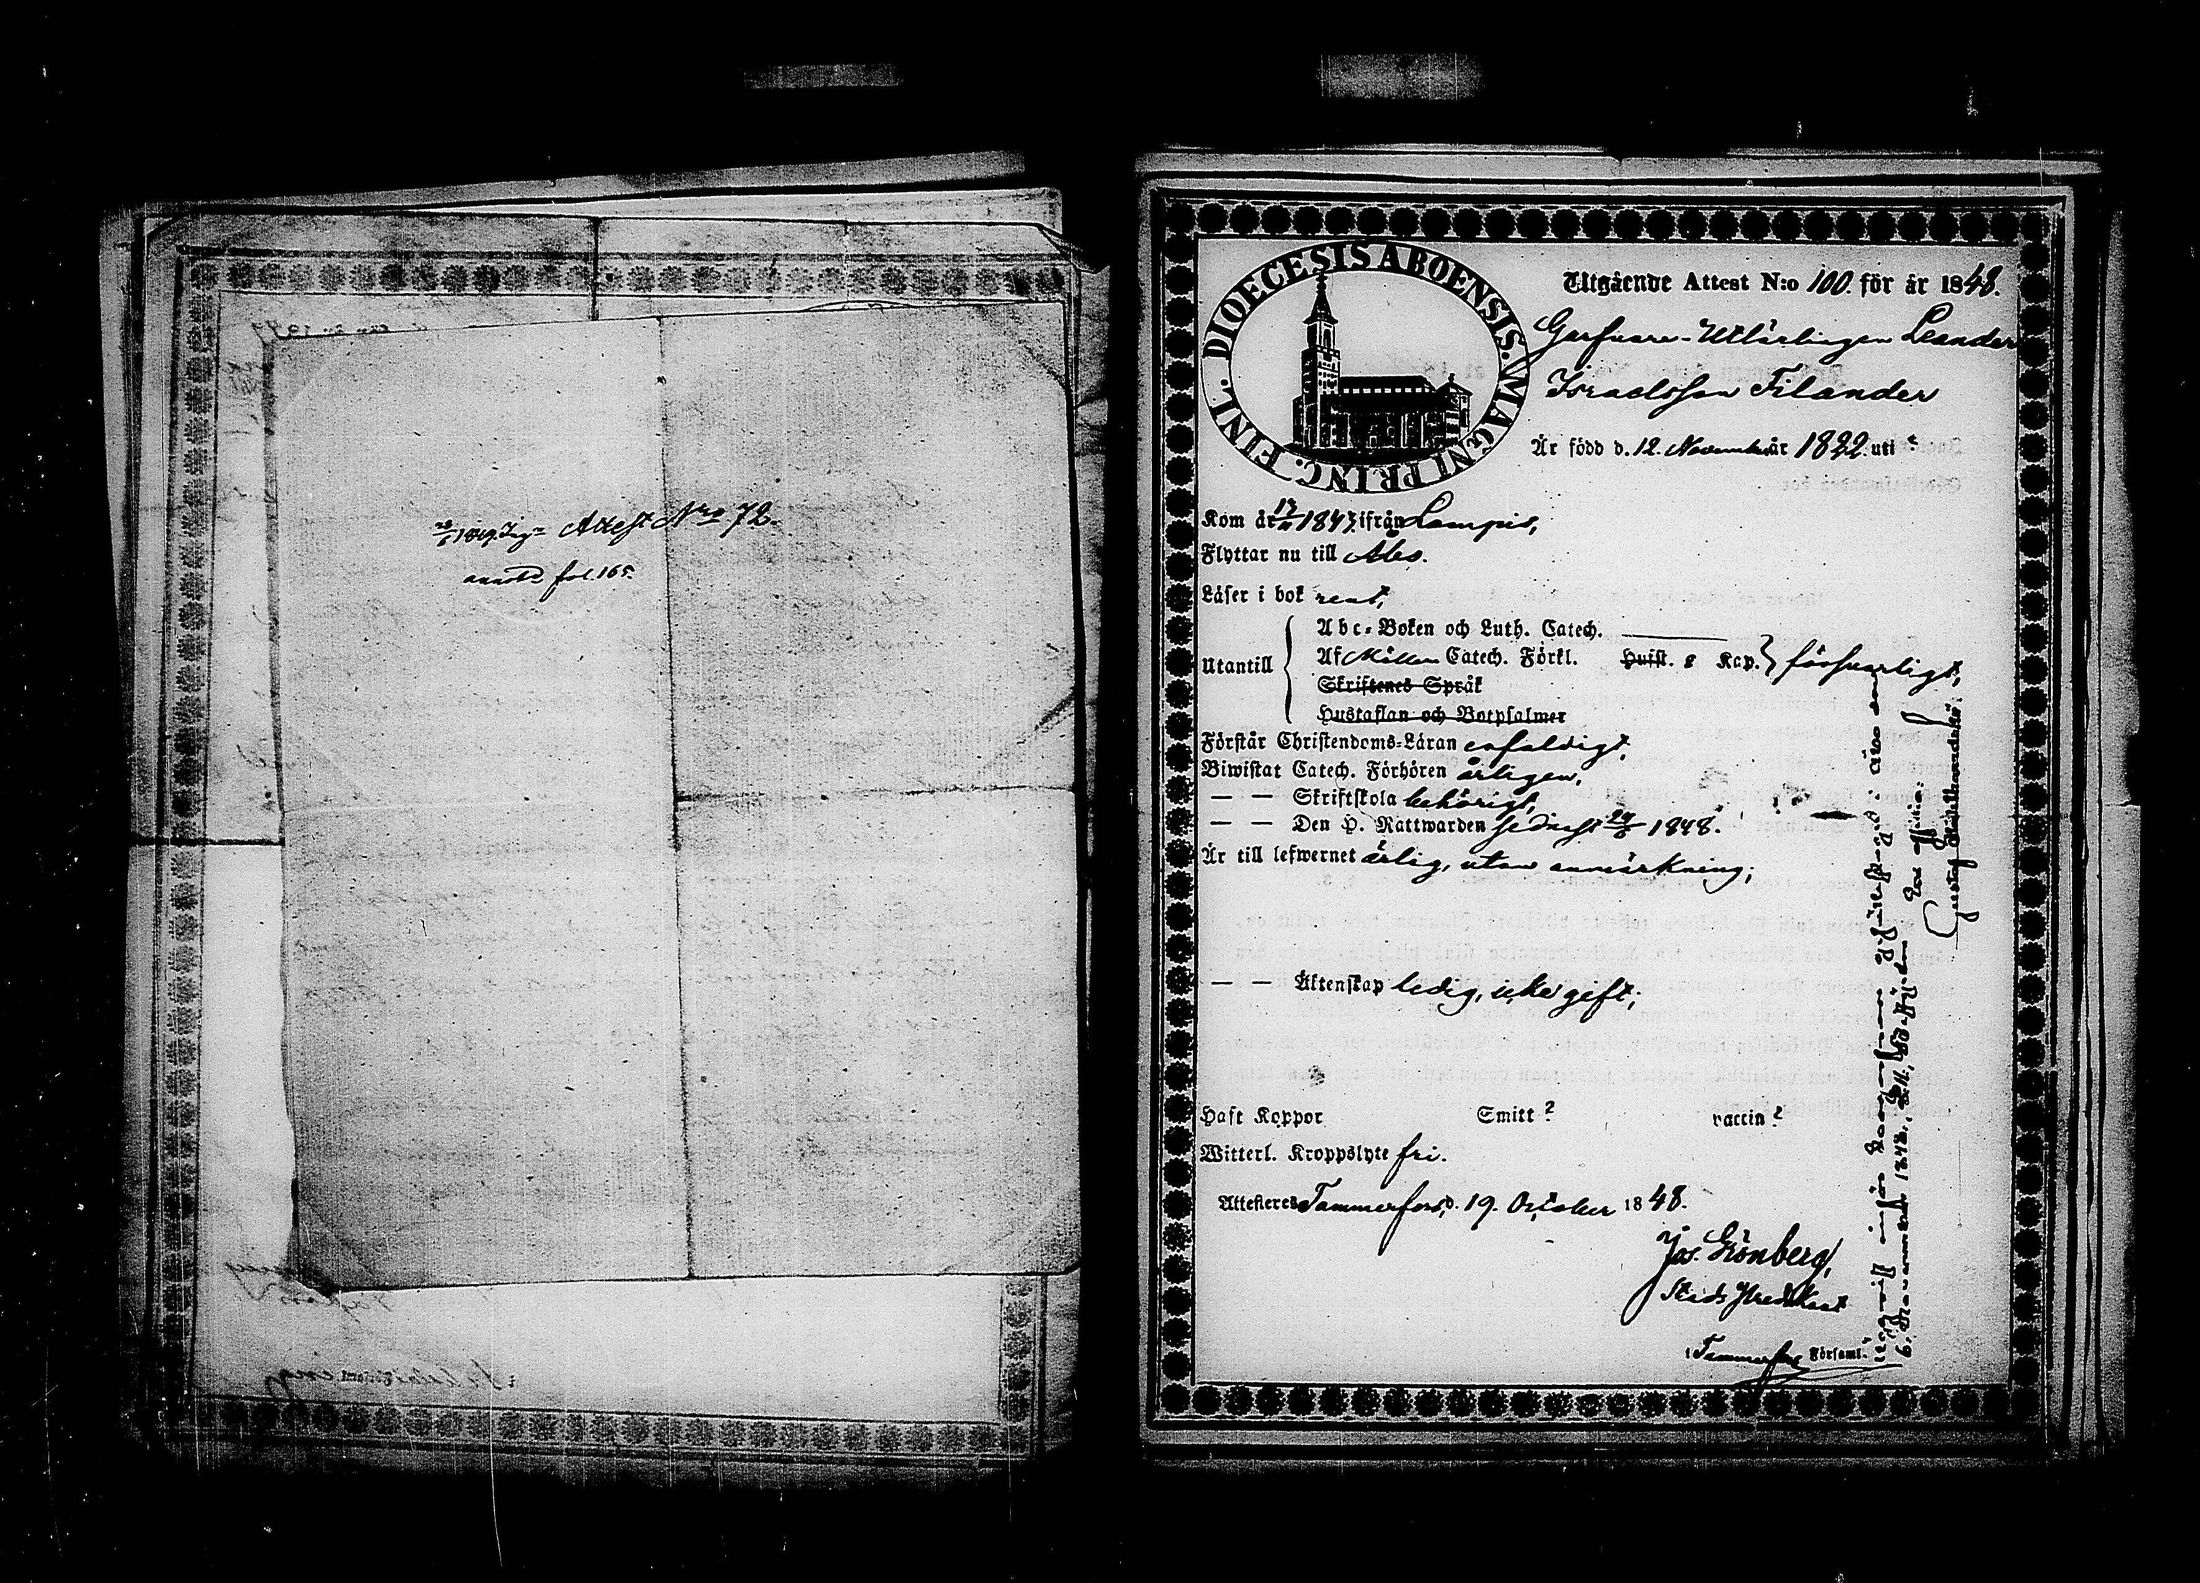 20/6 1849. Ing. Attest Nro 72.
annotd fol. 165.
DIOECESIS ABOENSIS. MAGNI PRINC. FINL.
Utgående Attest N:o 100. för år 1848.
Garfvare-Utlärlingen Leander
Israelsson Filander
Är född d. 12. November år 1822. uti ?
Kom år 1847. ifrån Lampis,
Flyttar nu till Åbo.
Läser i bok rent,
Utantill
Abc-Boken och Luth. Catech.
Af Möllers Catech. Förkl. Husst. 2 Kap. } försvarligt,
Skriftenes Språk
Hustaflan och Botpsalmer
Förstår Christendoms-Läran enfaldigt,
Biwistat Catech. Förhören årligen,
— — Skriftskola behörigt,
— — Den H. Nattwarden sednast 24/6 1848.
Är till lefwernet ärlig, utan anmärkning;
— — Äktenskap ledig, icke gift;
Haft Koppor Smitt ? vaccin ?
Witterl. Kroppslyte fri.
Attesteres Tammerfors, d. 19. October 1848.
Jos. Grönberg,
Stads Predikant
i Tammerfors Församl.
inför i Åbo den
6. November 1848.
Ex officio:
Gustaf